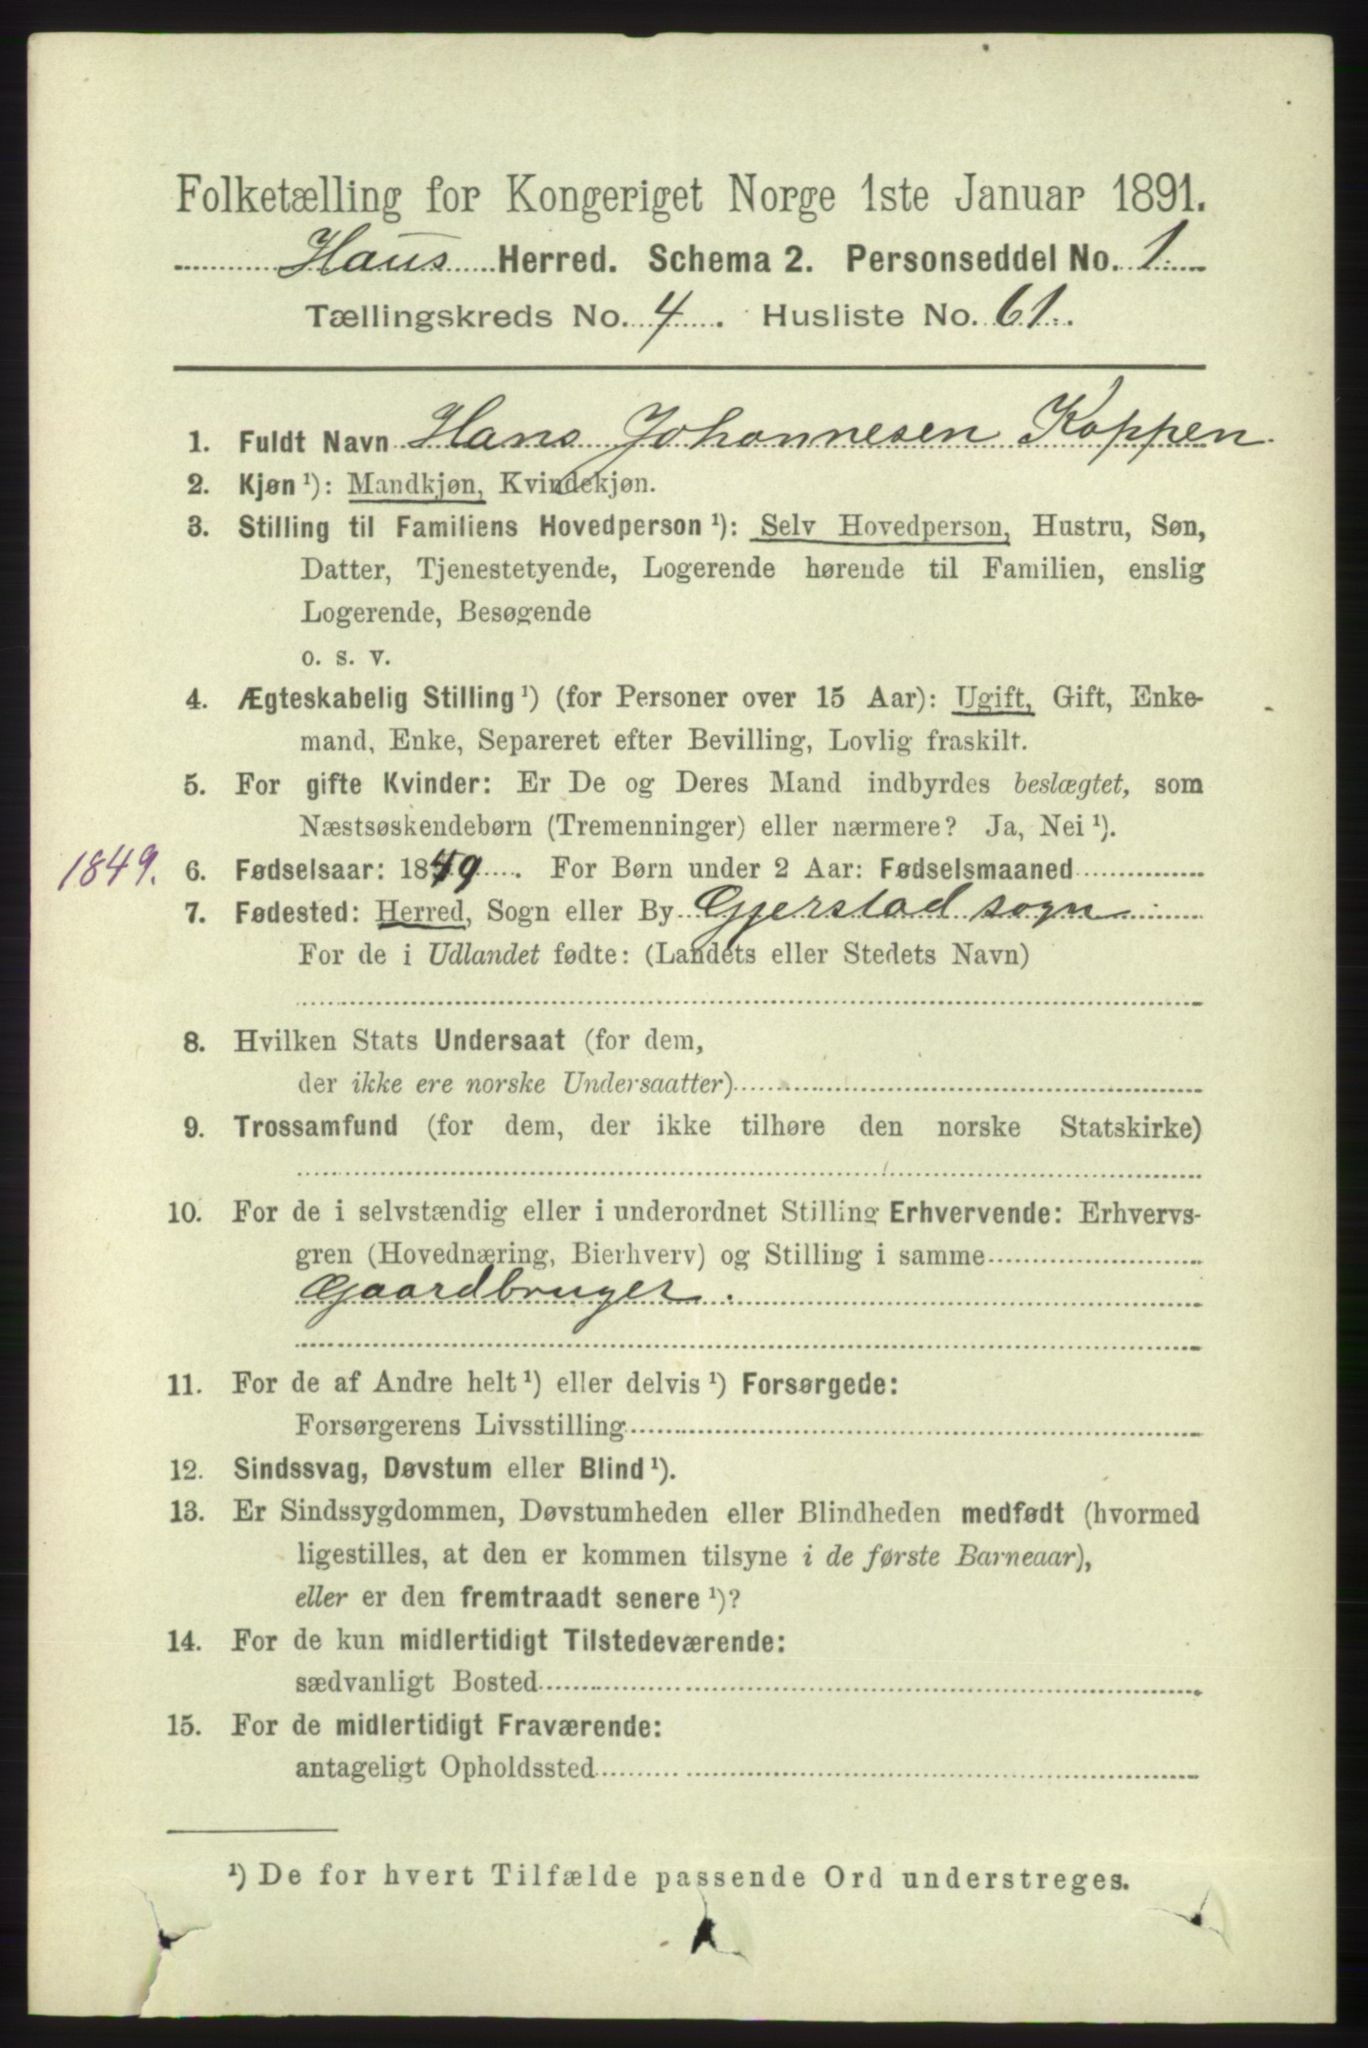 Folketælling for Kongeriget Norge 1ste Januar 1891.
Haus Herred. Schema 2. Personseddel No. 1
Tællingskreds No. 4. Husliste No. 61.
1. Fuldt Navn Hans Johannesen Koppen
2. Kjøn ¹): Mandkjøn, Kvindekjøn.
3. Stilling til Familiens Hovedperson ¹): Selv Hovedperson, Hustru, Søn,
Datter, Tjenestetyende, Logerende hørende til Familien, enslig
Logerende, Besøgende
o. s. v.
4. Ægteskabelig Stilling ¹) (for Personer over 15 Aar): Ugift, Gift, Enke-
mand, Enke, Separeret efter Bevilling, Lovlig fraskilt.
5. For gifte Kvinder: Er De og Deres Mand indbyrdes beslægtet, som
Næstsøskendebørn (Tremenninger) eller nærmere? Ja, Nei ¹).
1849. 6. Fødselsaar: 1849. For Børn under 2 Aar: Fødselsmaaned
7. Fødested: Herred, Sogn eller By Gjerstad sogn
For de i Udlandet fødte: (Landets eller Stedets Navn)
8. Hvilken Stats Undersaat (for dem,
der ikke ere norske Undersaatter)
9. Trossamfund (for dem, der ikke tilhøre den norske Statskirke)
10. For de i selvstændig eller i underordnet Stilling Erhvervende: Erhvervs-
gren (Hovednæring, Bierhverv) og Stilling i samme
Gaardbruger.
11. For de af Andre helt ¹) eller delvis ¹) Forsørgede:
Forsørgerens Livsstilling
12. Sindssvag, Døvstum eller Blind ¹).
13. Er Sindssygdommen, Døvstumheden eller Blindheden medfødt (hvormed
ligestilles, at den er kommen tilsyne i de første Barneaar),
eller er den fremtraadt senere ¹)?
14. For de kun midlertidigt Tilstedeværende:
sædvanligt Bosted
15. For de midlertidigt Fraværende:
antageligt Opholdssted
¹) De for hvert Tilfælde passende Ord understreges.